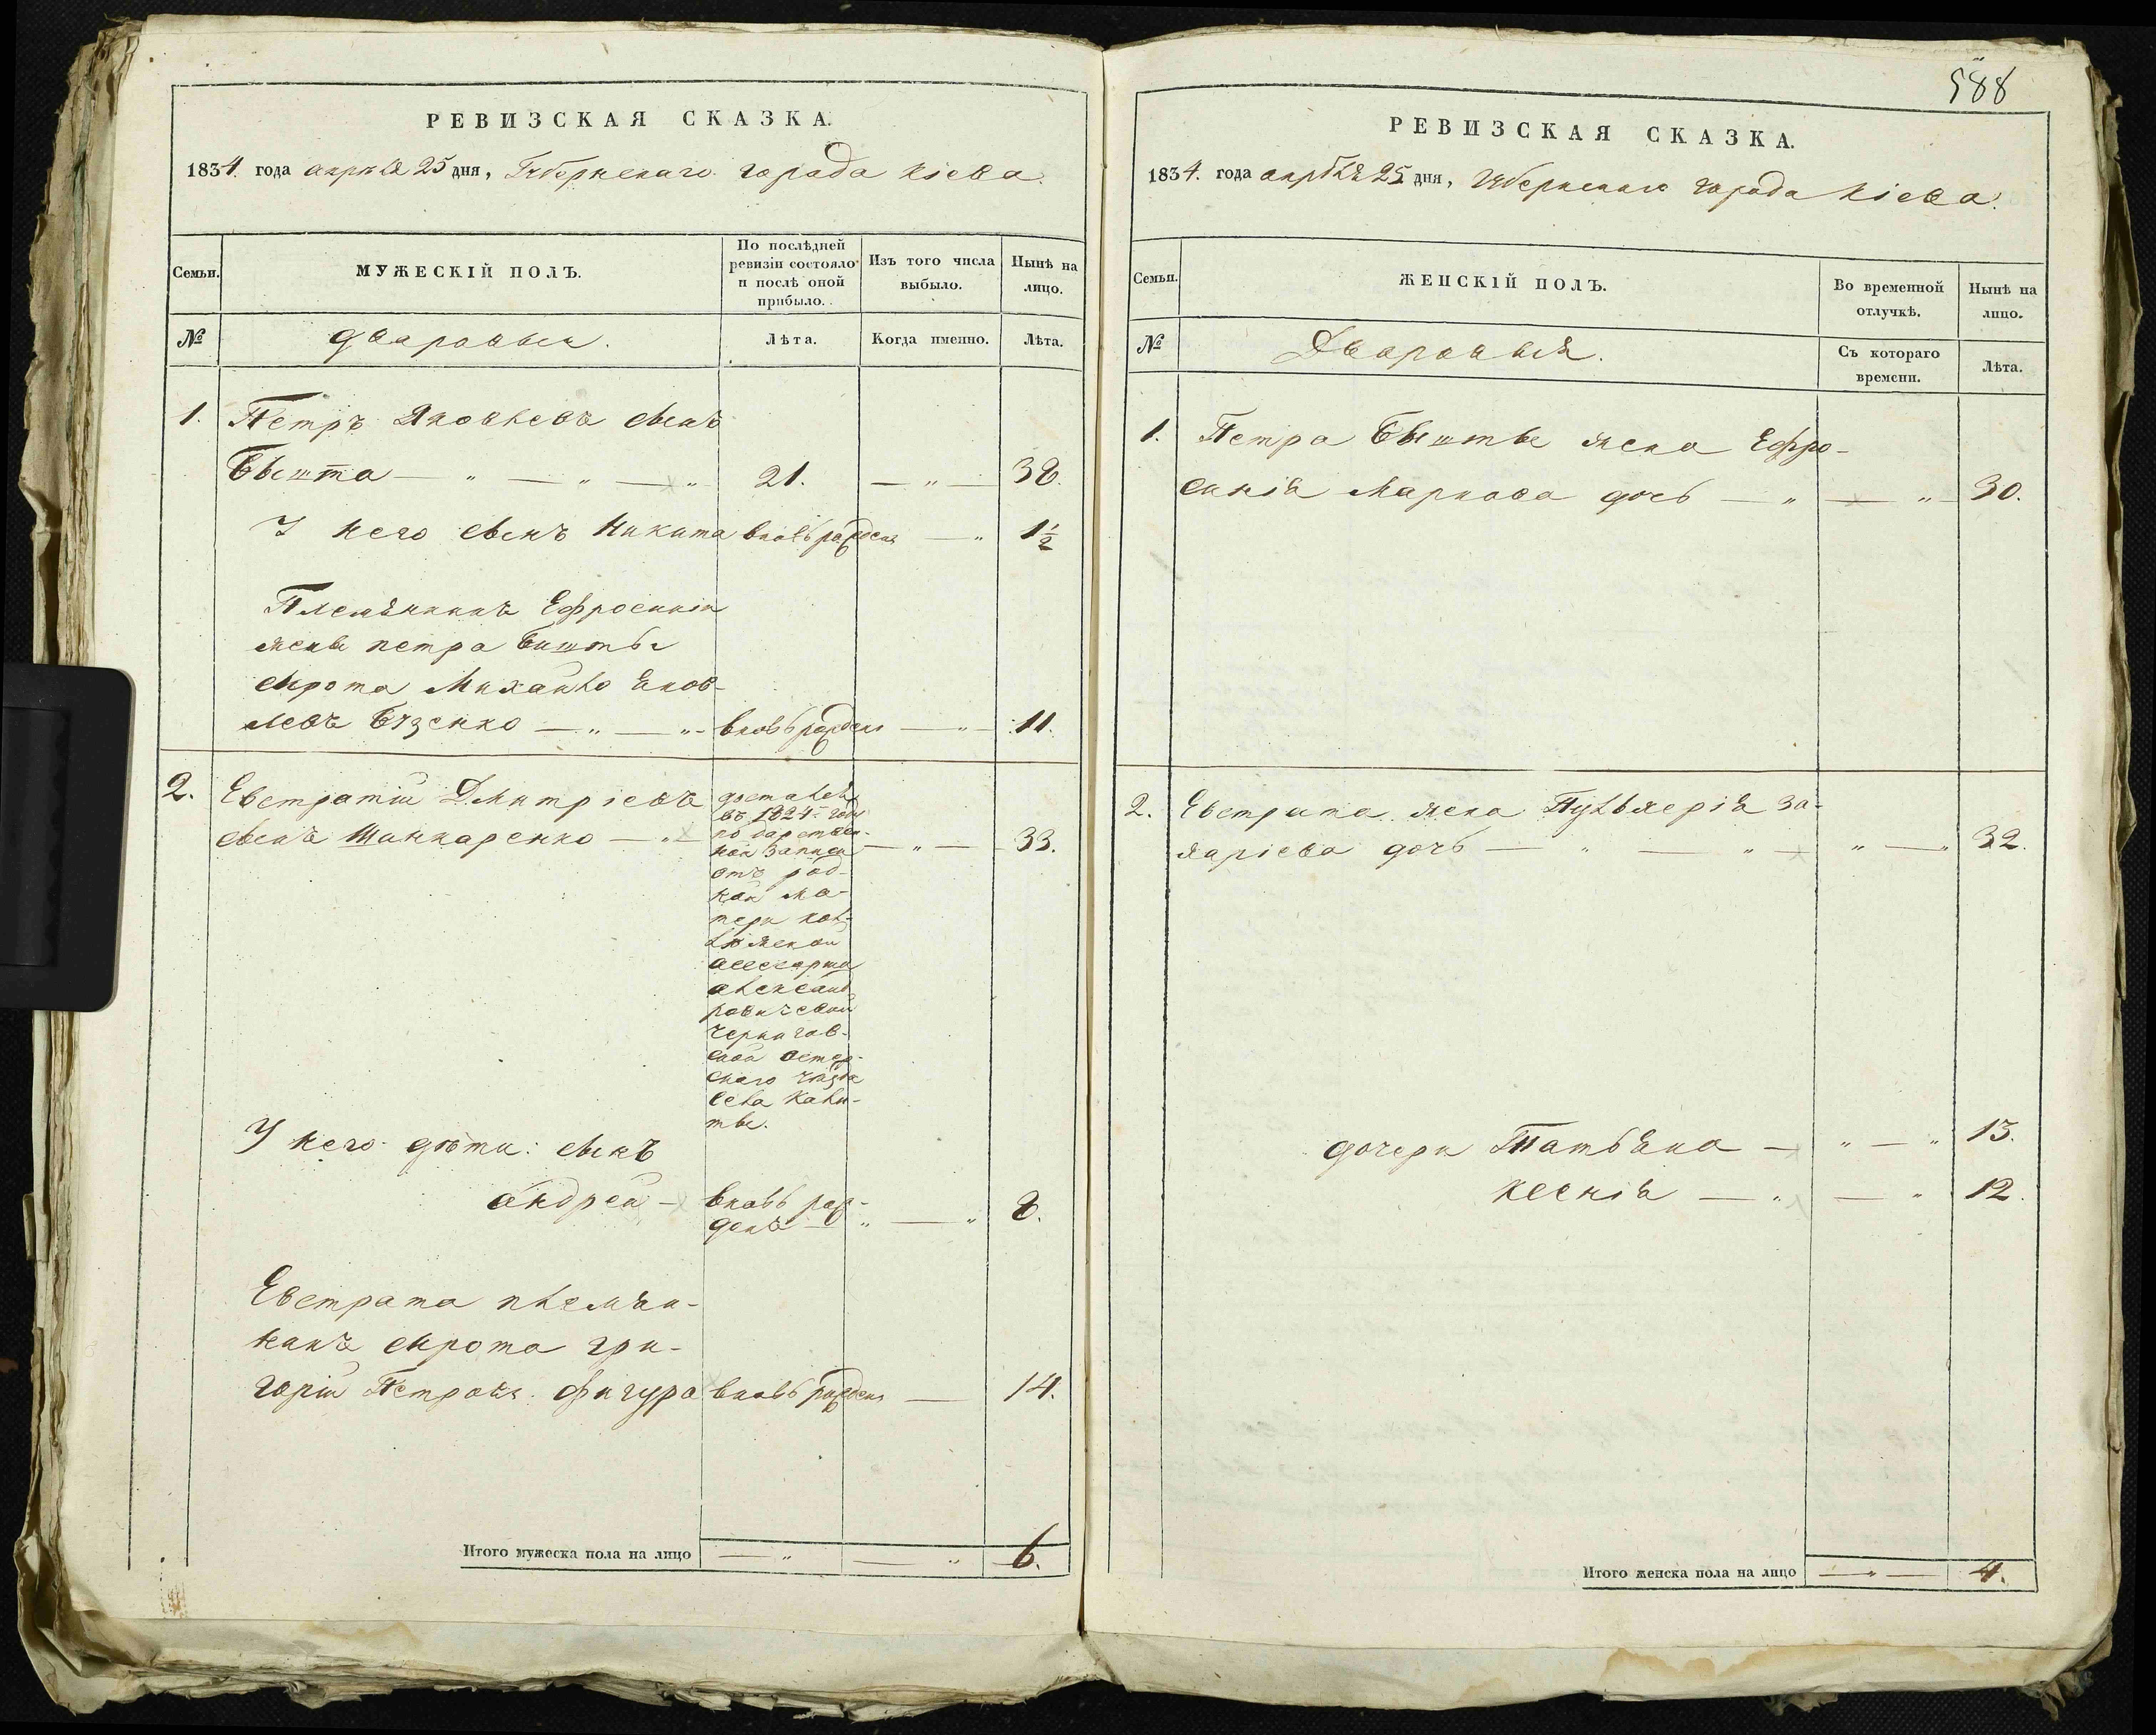 РЕВИЗСКАЯ СКАЗКА.
1834. года апрѣля 25 дня, Губернскаго города Кіева.
Семьи.
МУЖЕСКІЙ ПОЛЪ.
По послѣдней ревизіи состояло и послѣ оной прибыло.
Изъ того числа выбыло.
Нынѣ на лицо.
№
дворовыя.
Лѣта.
Когда именно.
Лѣта.
1. Петръ Яковлевъ сынъ
Бышта — „ — „ — „ 21. — „ — 38.
У него сынъ Никита вновь рожденъ — „ 1½
Племянникъ Ефросиніи
жены петра Бишты
сирота Михайло Яков-
левъ Бузенко — „ — „ вновь рожденъ — „ — 11.
2. Евстратій Дмитріевъ
сынъ Шинкаренко — „ — „ — 33.
досталси
въ 1824 году
по дарствен-
ной записи
отъ род-
ной ма-
тери кол-
лежской
асессорши
александ
ровичевой
чернигов-
ской остер-
скаго уѣзда
села Кали-
ты.
У него дѣти: сынъ
андрей — вновь рож-
денъ — „ — „ 8.
Евстрата племян-
никъ сирота гри-
горій Петровъ Фигура вновь рожденъ — 14.
Итого мужеска пола на лицо — „ — „ 6.
588
РЕВИЗСКАЯ СКАЗКА.
1834. года апрѣля 25 дня, Губернскаго города Кіева.
Семьи.
ЖЕНСКІЙ ПОЛЪ.
Во временной отлучкѣ.
Нынѣ на лицо.
№
Дворовыя.
Съ котораго времени.
Лѣта.
1. Петра Бышты жена Ефро-
синія Маркова дочь — „ — „ 30.
2. Евстрата жена Пульхерія За-
харіева дочь — „ — „ — „ — „ 32.
дочери Татьяна — „ — „ 13.
Ксенія — „ — „ 12.
Итого женска пола на лицо — „ — 4.